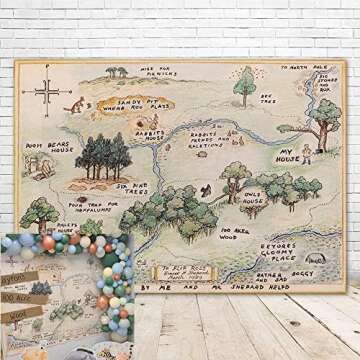 NICE FOR
PIKNICKS
TO NORTH POLE
BIG
STONES
AND
ROX
SANDY PIT
WHERE ROO PLAYS
BEE
TREES
RABBITS
HOUSE
RABBITS
FRENDS AND
RALETIONS
POOH BEARS
HOUSE
MY
HOUSE
SIX PINE
TREES
OWLS
HOUSE
POOH TRAP FOR
HEFFALUMPS
100 AKER
WOOD
PIGLETS
HOUSE
EEYORES
GLOOMY
PLACE
RATHER BOGGY
AND SAD
BY ME AND MR SHEPARD HELPD
100 Acre
Wood